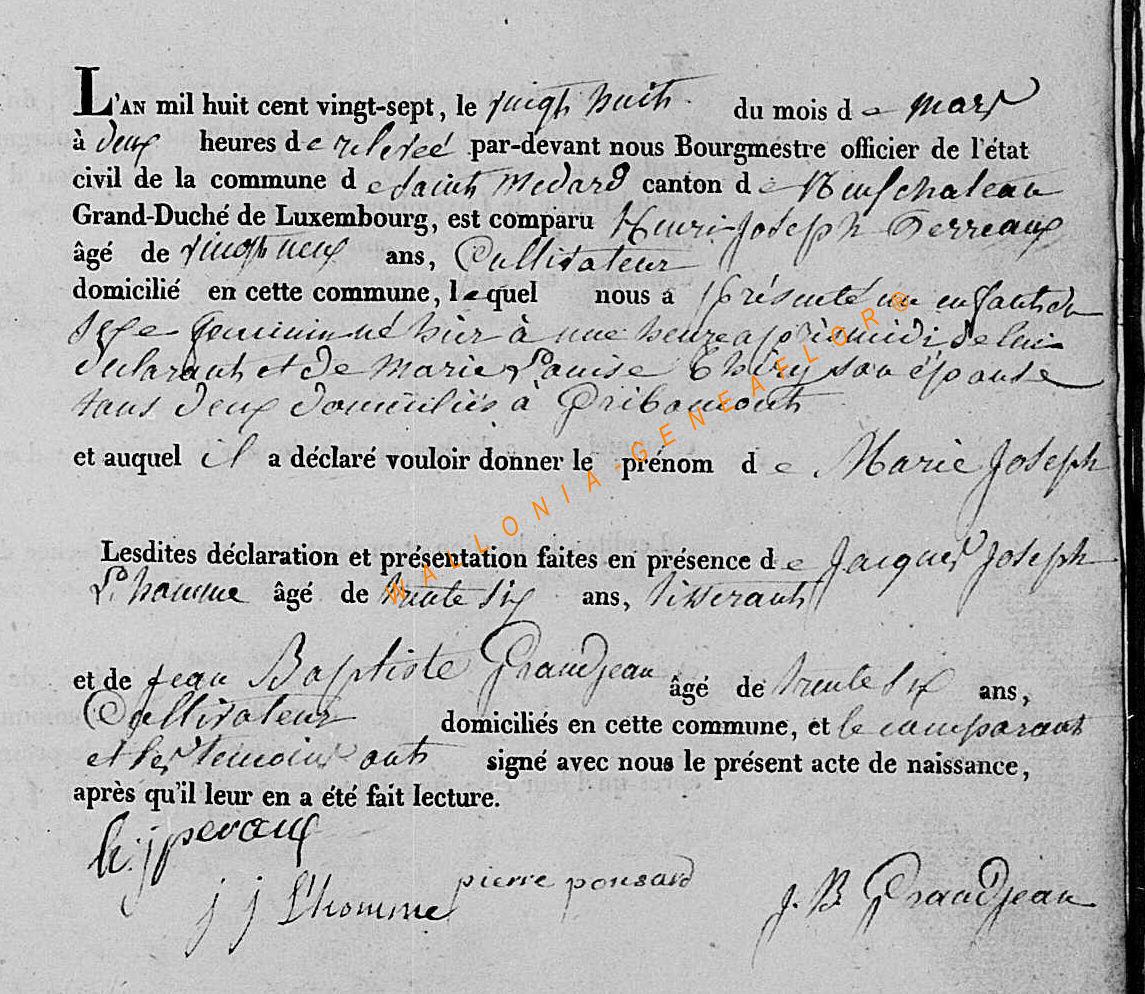 L'AN mil huit cent vingt-sept, le vingt huit du mois de mars
à deux heures de relevée par-devant nous Bourgmestre officier de l'état
civil de la commune de Saint Medard canton de Neufchateau
Grand-Duché de Luxembourg, est comparu Henri Joseph Perreaux
âgé de vingt neuf ans, Cultivateur
domicilié en cette commune, lequel nous a présenté un enfant du
sexe feminin né hier à une heure après midi de lui
declarant et de Marie Louise Thiry son épouse
tous deux domiciliés à Gribomont
et auquel il a déclaré vouloir donner le prénom de Marie Joseph
Lesdites déclaration et présentation faites en présence de Jacques Joseph
L'homme âgé de trente six ans, tisserant
et de Jean Baptiste Grandjean âgé de trente six ans,
Cultivateur domiciliés en cette commune, et le comparant
et les temoins ont signé avec nous le présent acte de naissance,
après qu'il leur en a été fait lecture.
h. j peraux
j j L'homme pierre ponsard J. B. Grandjean
WALLONIA-GENEAFLOR@